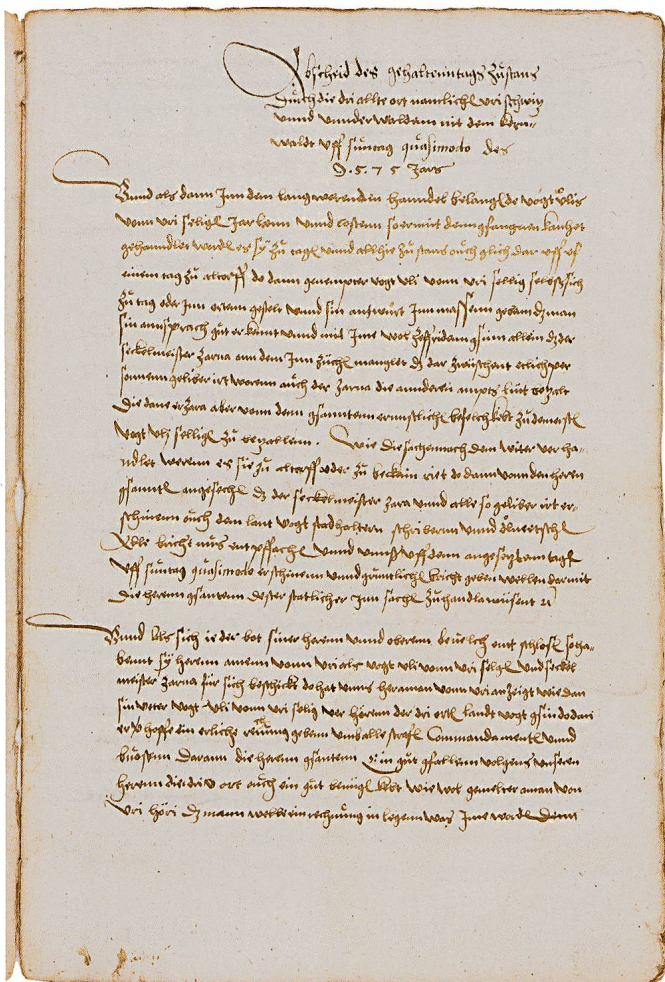 Abscheid des gehaltenntags zů stans
Durch die dri allte ort namlich vri schwitz
vnnd vnnderwaldann nit dem kern-
waldt vff sůntag quasimodo des
1575 Jars
Vnnd als dann Inn dem lang werenden hanndel belangende vogt vlis
vonn vri selig Jarlonn vnnd costenn so er mit denn gfangnen kan
gehanndlet werdt es sÿ zů tag vnnd allhie zů stans ouch glich dar vff vf
einem tag zů altorff do dann genempter vogt vli vonn vri sellig selbst sich
zů tag oder Inn ortenn gestelt vnnd sin antwůrt Inn massenn gebenn dz man
sin annsprach gůt erkannt vnnd mit Ime wol zefridenn gsinn allein dz der
seckelmeister zarna ann dem Inn manglet dz dar zwüschent etlich per
sonnenn geliberirt worenn ouch der zarna die annderen ampts lüt bezalt
Die dann er zara aber vonn denn gsanntenn ernnstlich befelch
vogt vli sellig zů bezallenn. Wie die sach nach dem witer verha-
ndlet werenn es sie zů altorff oder zů beckainriet do dann vonn den heren
gsannt angesechen dz der seckelmeister zara vnnd alle so geliberirt er-
schinenn ouch den lant vogt stadhaltern schribernn vnnd
Alle bricht entpfachen vnnd vff denn angesetzten tag
vff sůntag quasimodo erschinenn vnnd grůntlich bricht geben wellen darmit
Die herenn gsantenn dester statlicher Inn sach zů handlen wüsent
Vnnd Als sich ieder bot siner herenn vnnd oberenn beuelch ent schlossen so ha-
bennt sÿ herenn amenn vonn vri als vogt vli vonn vri selg vnd seckel
meister zarna für sich beschickt do hat vnns her aman vonn vri anzeigt wie dan
sin vetter vogt vli vonn vri selig der dri ort landt vogt gsin do dan
er hoffe ein erliche rechnung gebenn vmb alle straf Commandament vnnd
bůossenn Darann die herenn gsantenn Ein gůt gfallenn volgens vnseren
herenn die dri ort ouch ein gůt benüg wie wol gemelter aman von
vri höri dz mann welle ein rechnůng in legenn was Ime werde Denn